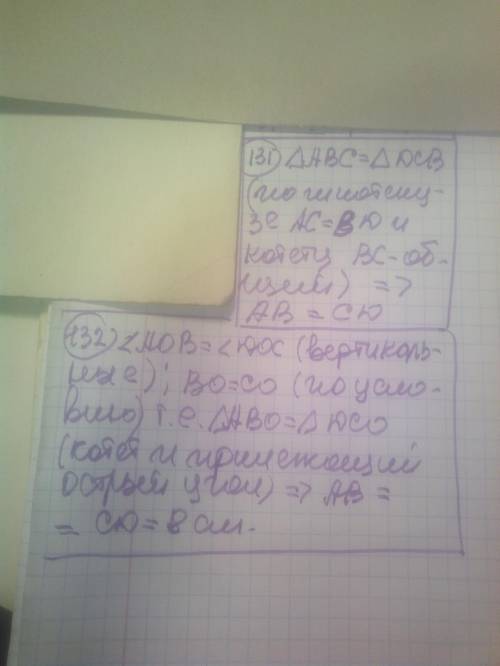 131) △ABC = △DCB
(по гипотену-
зе AC = BD и
катету BC - об-
щем) =>
AB = CD
132) ∠AOB = ∠DOC (вертикаль-
ные); BO = CO (по усло-
вию) т.е. △ABO = △DCO
(катет и прилежащий
острый угол) => AB =
= CD = 8 см.